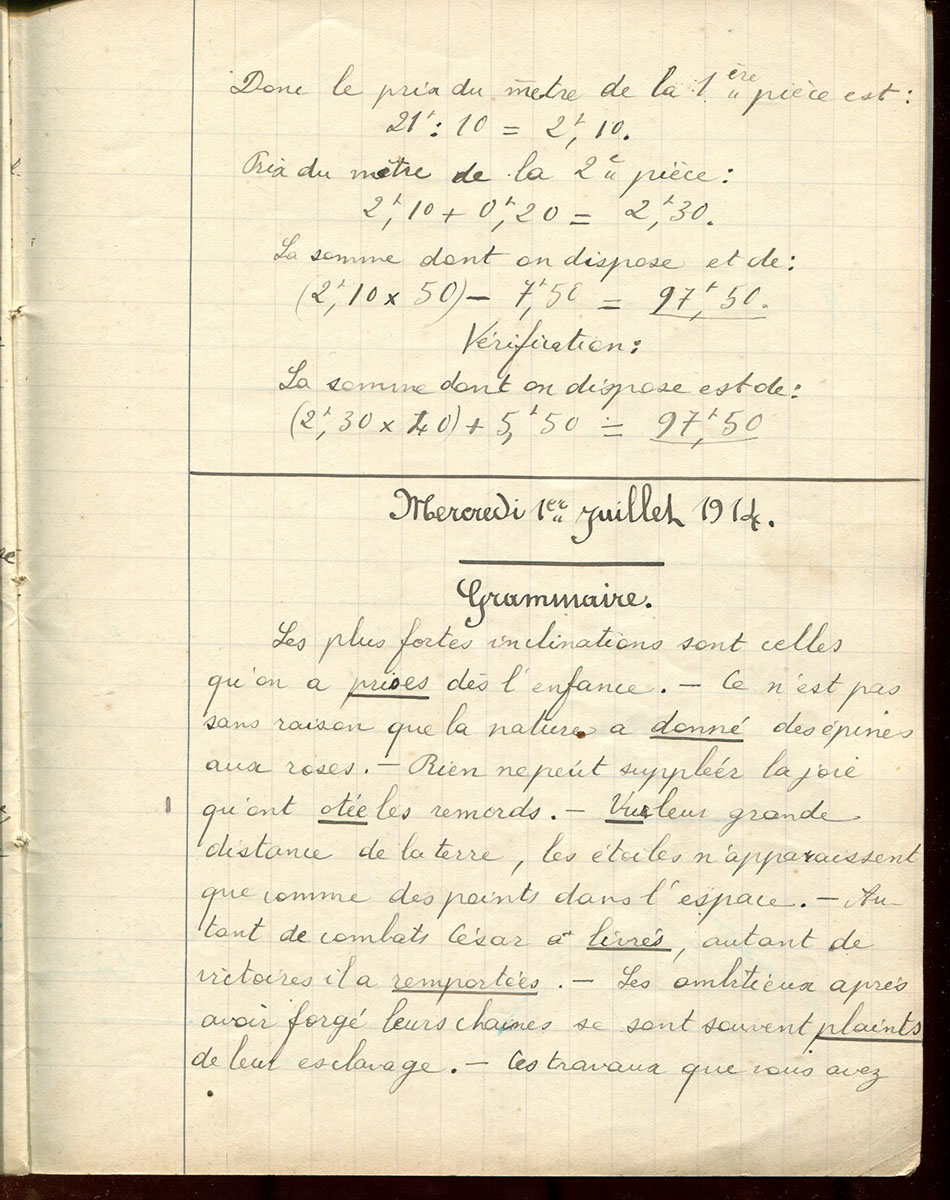 Donc le prix du mètre de la 1ère pièce est:
21f : 10 = 2f,10.
Prix du mètre de la 2e pièce:
2f,10 + 0f,20 = 2f,30.
La somme dont on dispose et de:
(2f,10 x 50) - 7f,50 = 97f,50.
Vérification:
La somme dont on dispose est de:
(2f,30 x 40) + 5f,50 = 97f,50
Mercredi 1er juillet 1914.
Grammaire.
Les plus fortes inclinations sont celles
qu'on a prises dès l'enfance. — Ce n'est pas
sans raison que la nature a donné des épines
aux roses. — Rien ne peut suppléer la joie
qu'ont otée les remords. — Vu leur grande
distance de la terre, les étoiles n'apparaissent
que comme des points dans l'espace. — Au-
tant de combats César a livrés, autant de
victoires il a remportées. — Les ambitieux après
avoir forgé leurs chaines se sont souvent plaints
de leur esclavage. — Ces travaux que vous avez